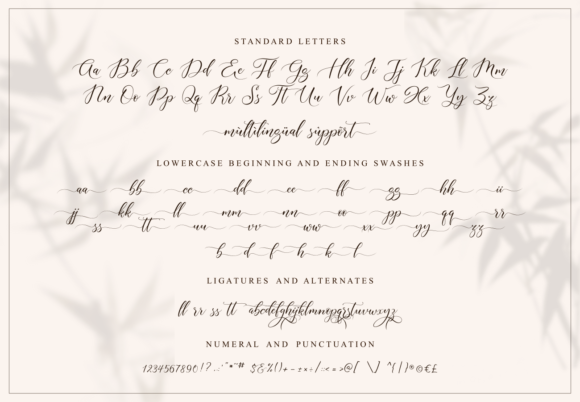 STANDARD LETTERS
Aa Bb Cc Dd Ee Ff Gg Hh Ii Jj Kk Ll Mm
Nn Oo Pp Qq Rr Ss Tt Uu Vv Ww Xx Yy Zz
multilingüal süpport
LOWERCASE BEGINNING AND ENDING SWASHES
aa bb cc dd ee ff gg hh ii
jj kk ll mm nn oo pp qq rr
ss tt uu vv ww xx yy zz
b d f h k l
LIGATURES AND ALTERNATES
ll rr ss tt abcdefghijklmnopqrstuvwxyz
NUMERAL AND PUNCTUATION
1234567890!?